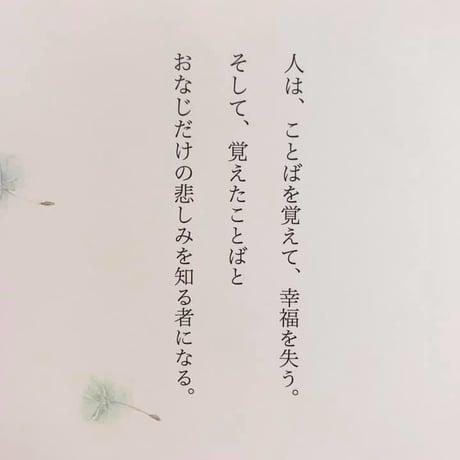 人は、ことばを覚えて、幸福を失う。
そして、覚えたことばと
おなじだけの悲しみを知る者になる。